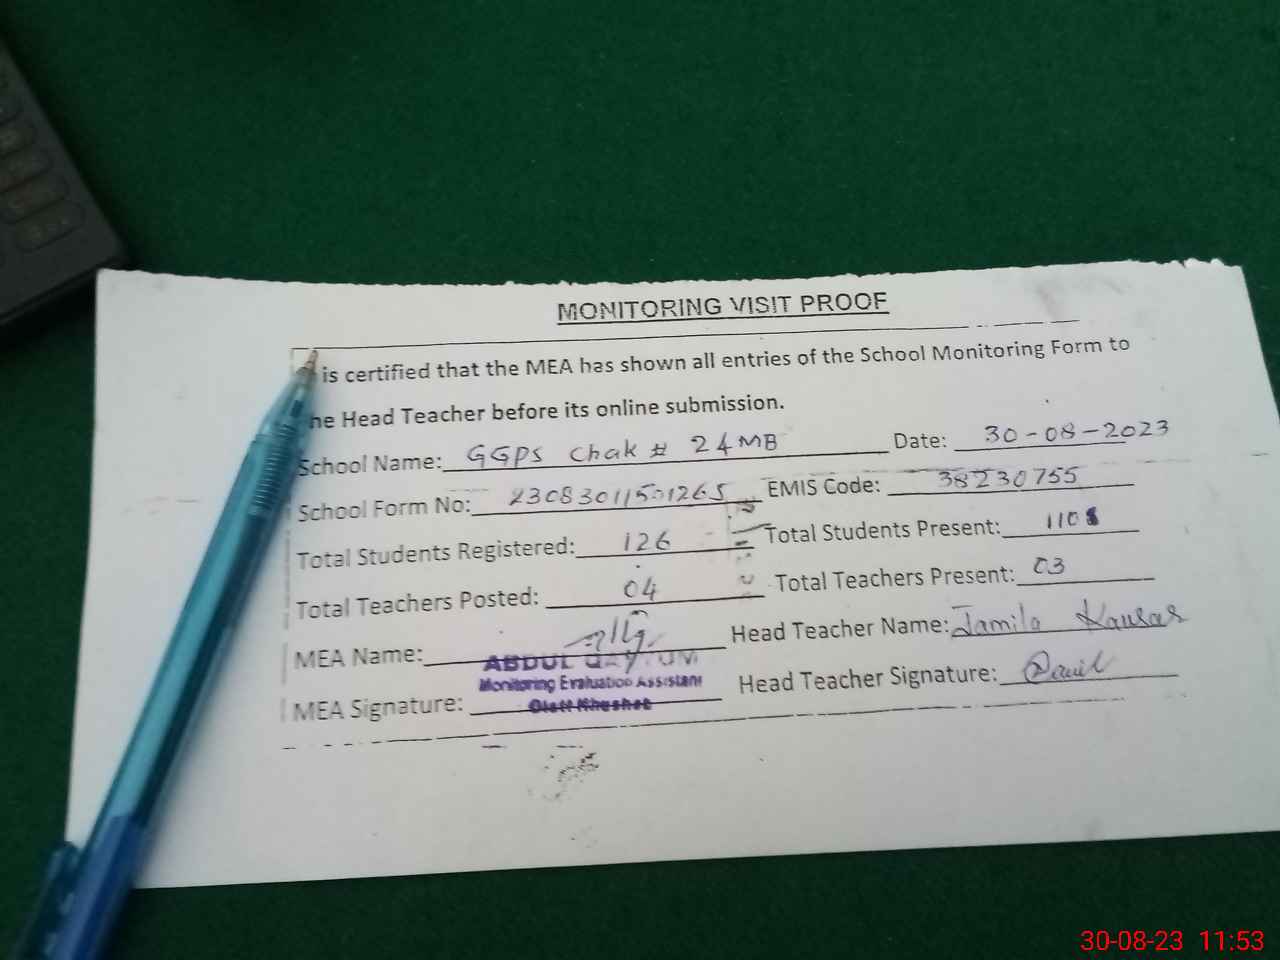 MONITORING VISIT PROOF
is certified that the MEA has shown all entries of the School Monitoring Form to
he Head Teacher before its online submission.
School Name: GGPS Chak # 24MB Date: 30-08-2023
School Form No: 23083011501265 EMIS Code: 38230755
Total Students Registered: 126 Total Students Present:
Total Teachers Posted: 04 Total Teachers Present: 03
MEA Name: Head Teacher Name: Jamila Kausar
ABDUL QAYYUM
Monitoring Evaluation Assistant
MEA Signature: Head Teacher Signature:
30-08-23 11:53